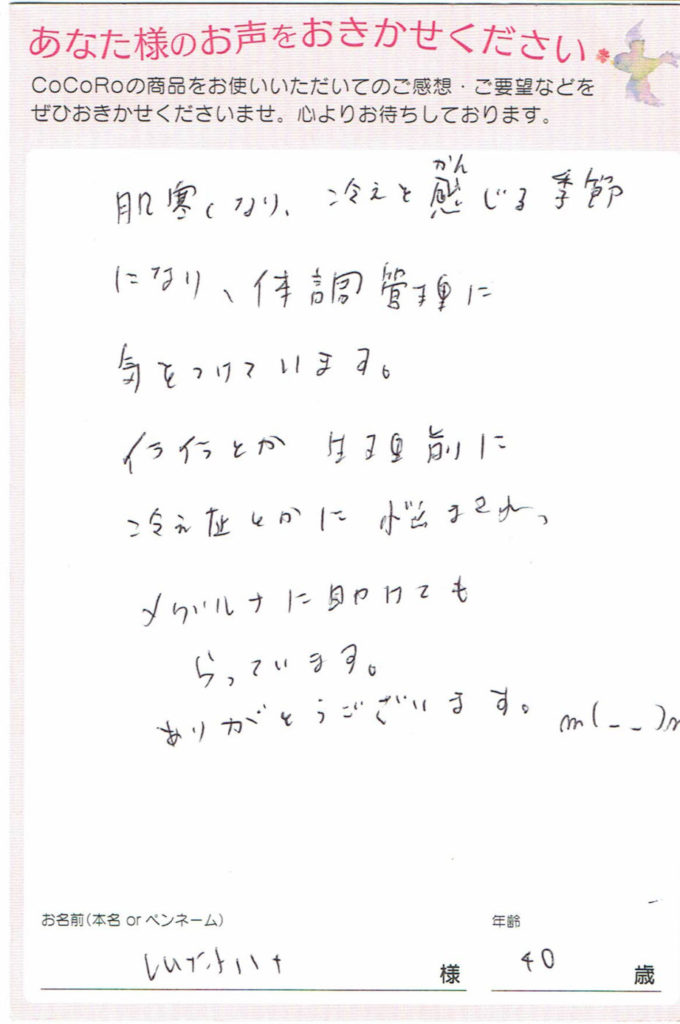 あなた様のお声をおきかせください
CoCoRoの商品をお使いいただいてのご感想・ご要望などを
ぜひおきかせくださいませ。心よりお待ちしております。
かん
肌寒くなり、冷えを感じる季節
になり、体調管理に
気をつけています。
イライラとか 生理前に
冷え症とかに 悩まされ、
メグルナに助けても
らっています。
ありがとうございます。 m(_ _)m
お名前(本名 or ペンネーム)
年齢
様
40
歳